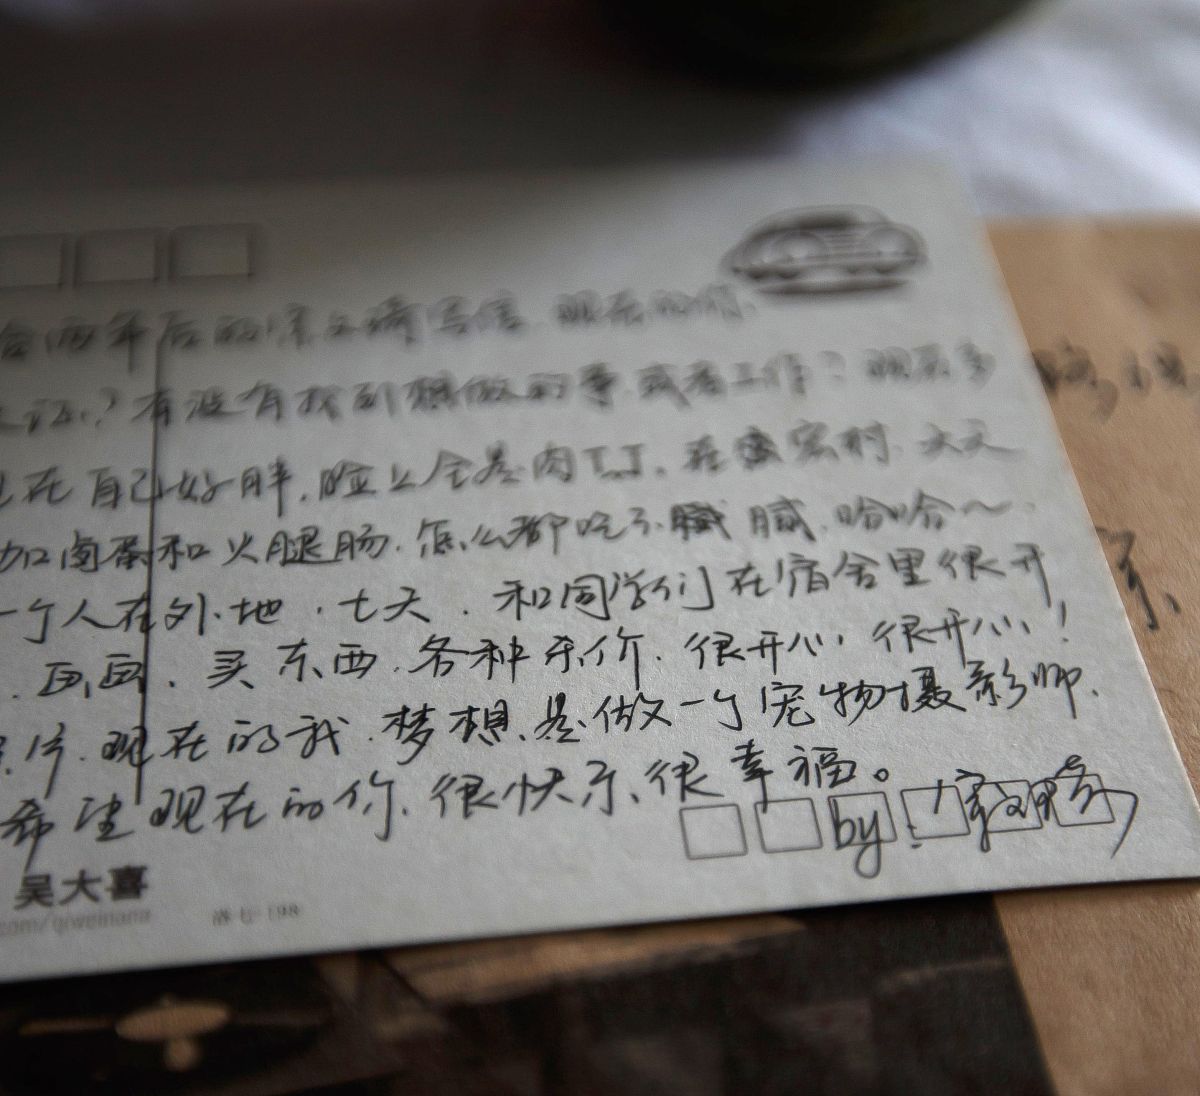 给两年后的宋文婧写信.现在的你.
了?有没有找到想做的事.或者工作?现在多
在自己好胖.脸上全是肉TT.在宏村.天天
加卤蛋和火腿肠.怎么都吃不腻.哈哈~
一个人在外地.七天.和同学们在宿舍里很开
.画画.买东西.各种杀价.很开心.很开心!
片.现在的我.梦想.是做一个宠物摄影师.
希望现在的你.很快乐.很幸福。
by.
吴大喜
.com/qiweinana
洛七-198